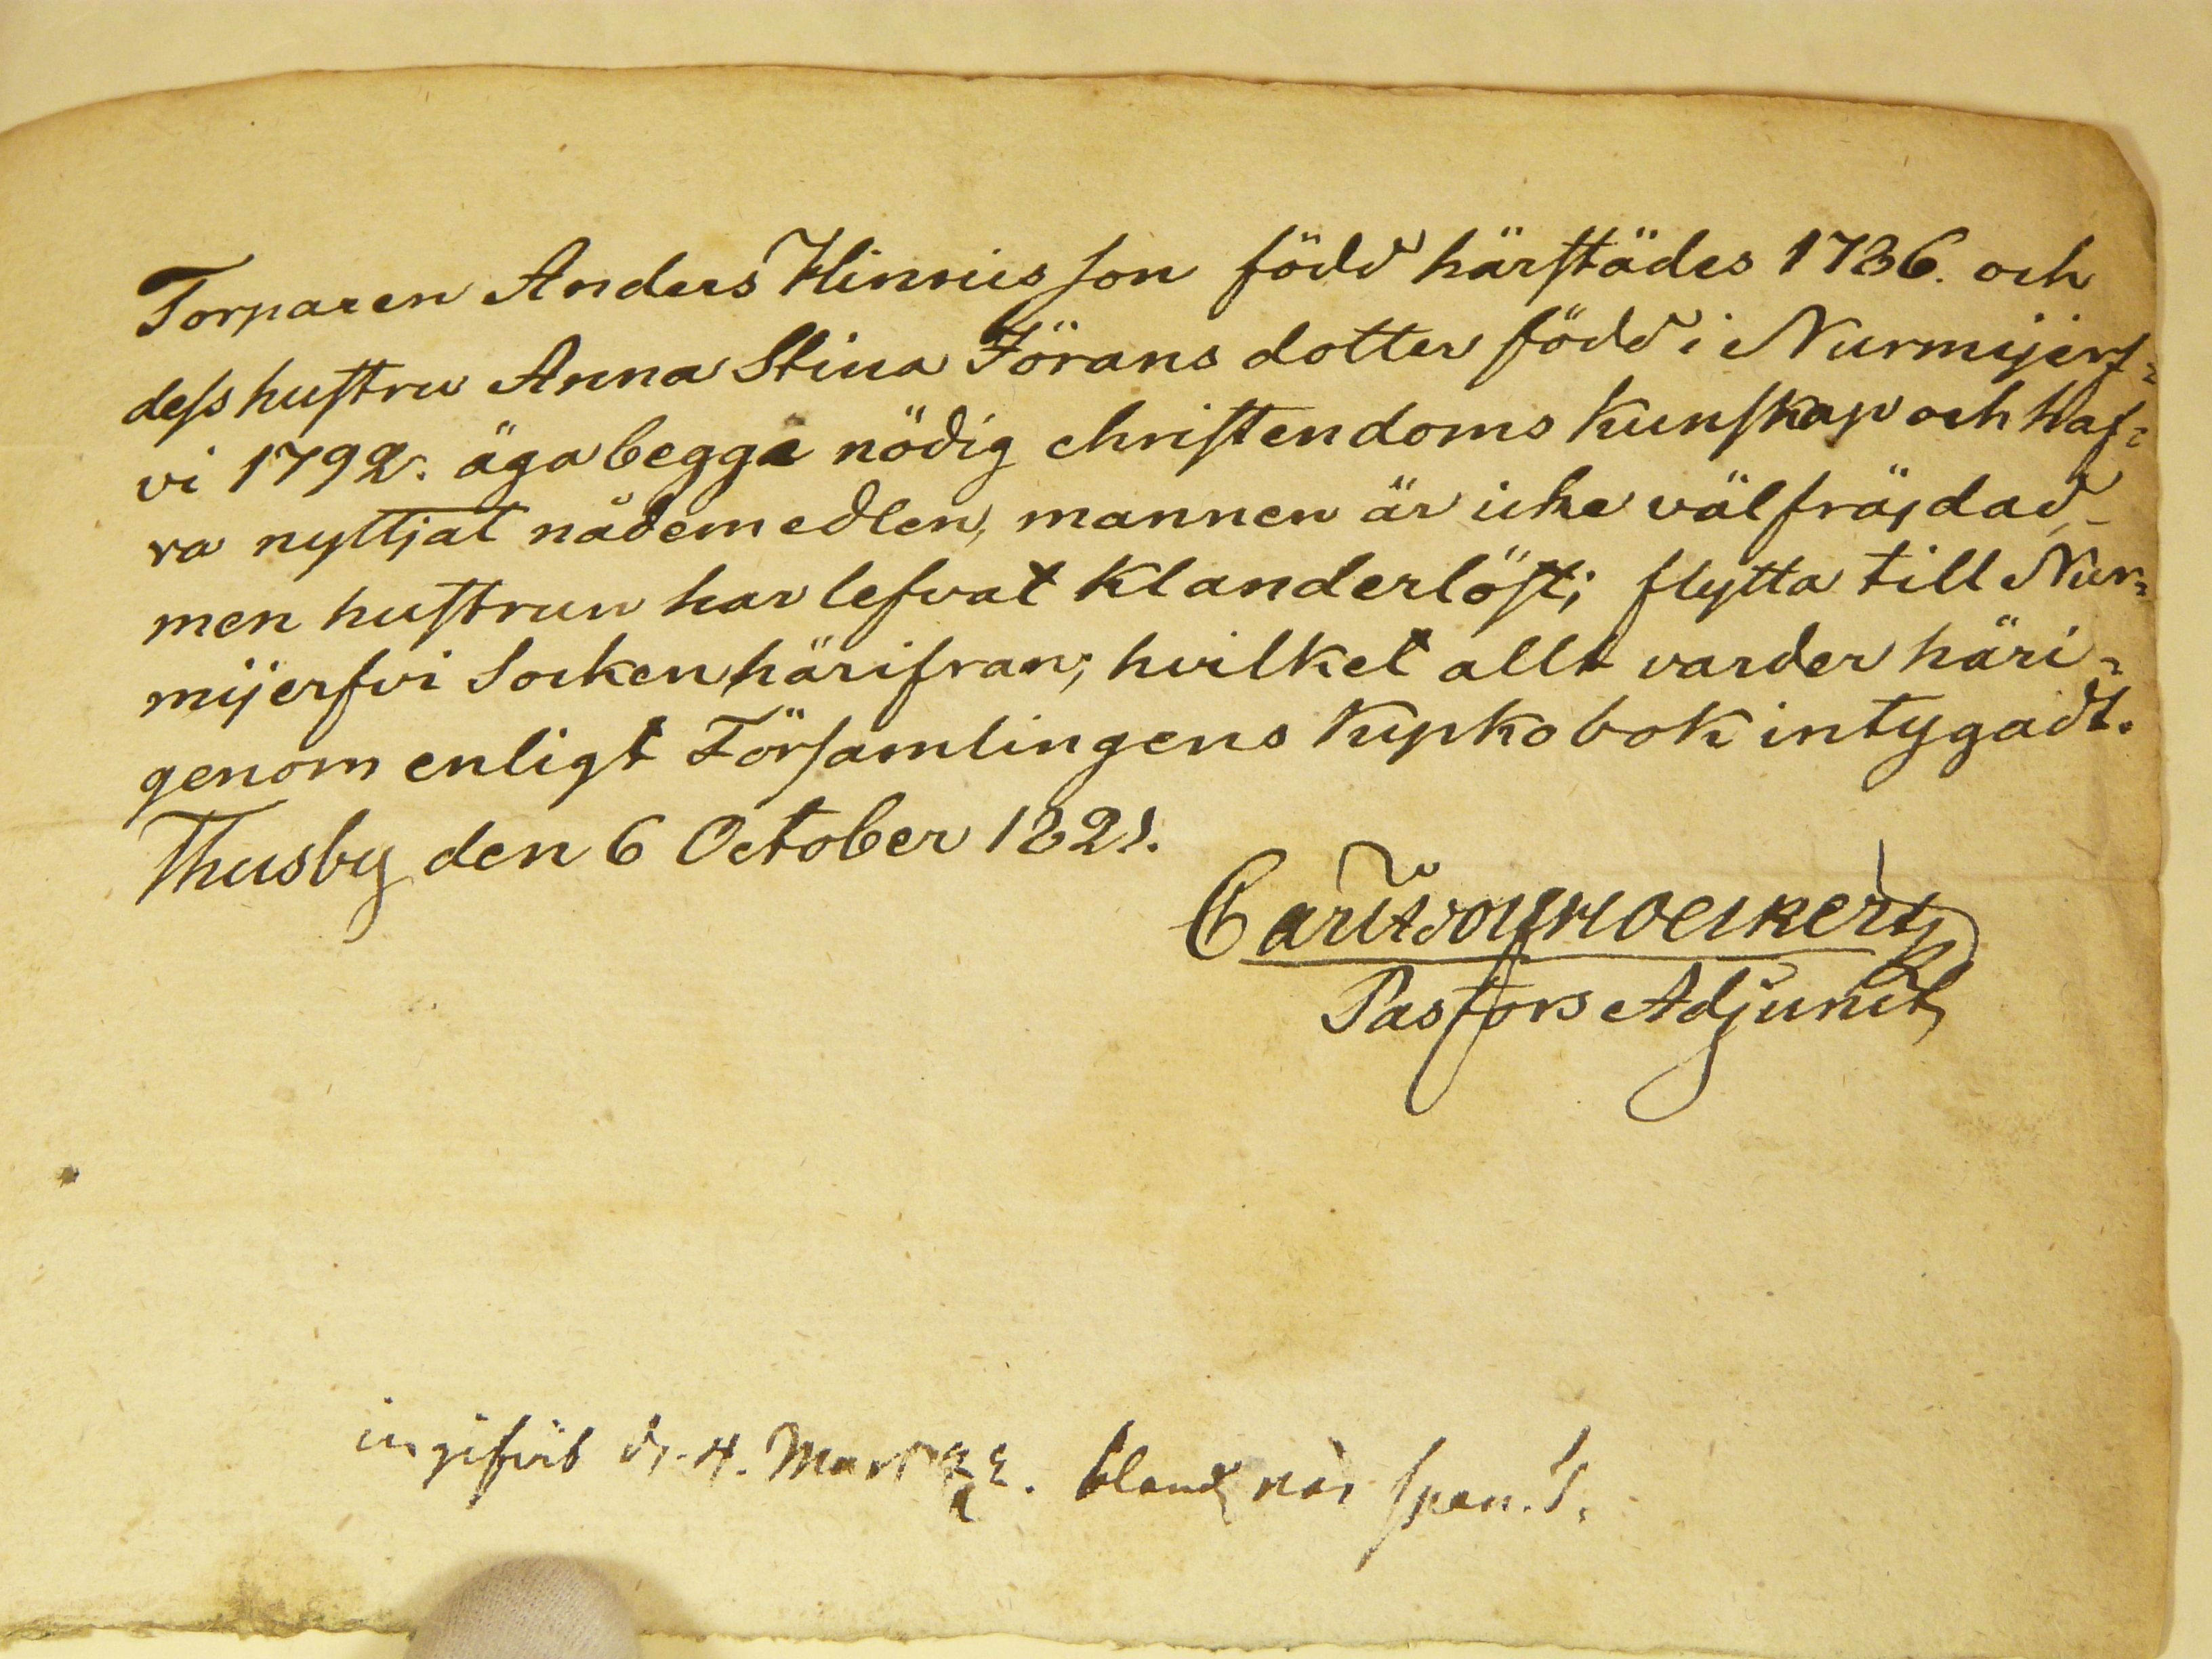 Torparen Anders Hinricsson född härstädes 1786. och
dess hustru Anna Stina Jörans dotter född i Nurmijerf=
vi 1792. äga begge nödig christendoms kunskap och haf=
va nyttjat nådemedlen, mannen är icke välfräjdad
men hustrun har lefvat klanderlöst; flytta till Nur=
mijerfvi Socken härifran; hvilket allt varder häri=
genom enligt Församlingens kyrkobok intygadt.
Thusby den 6 October 1821.
Pastors Adjunct
ingifvit d. 4. Mart 22.